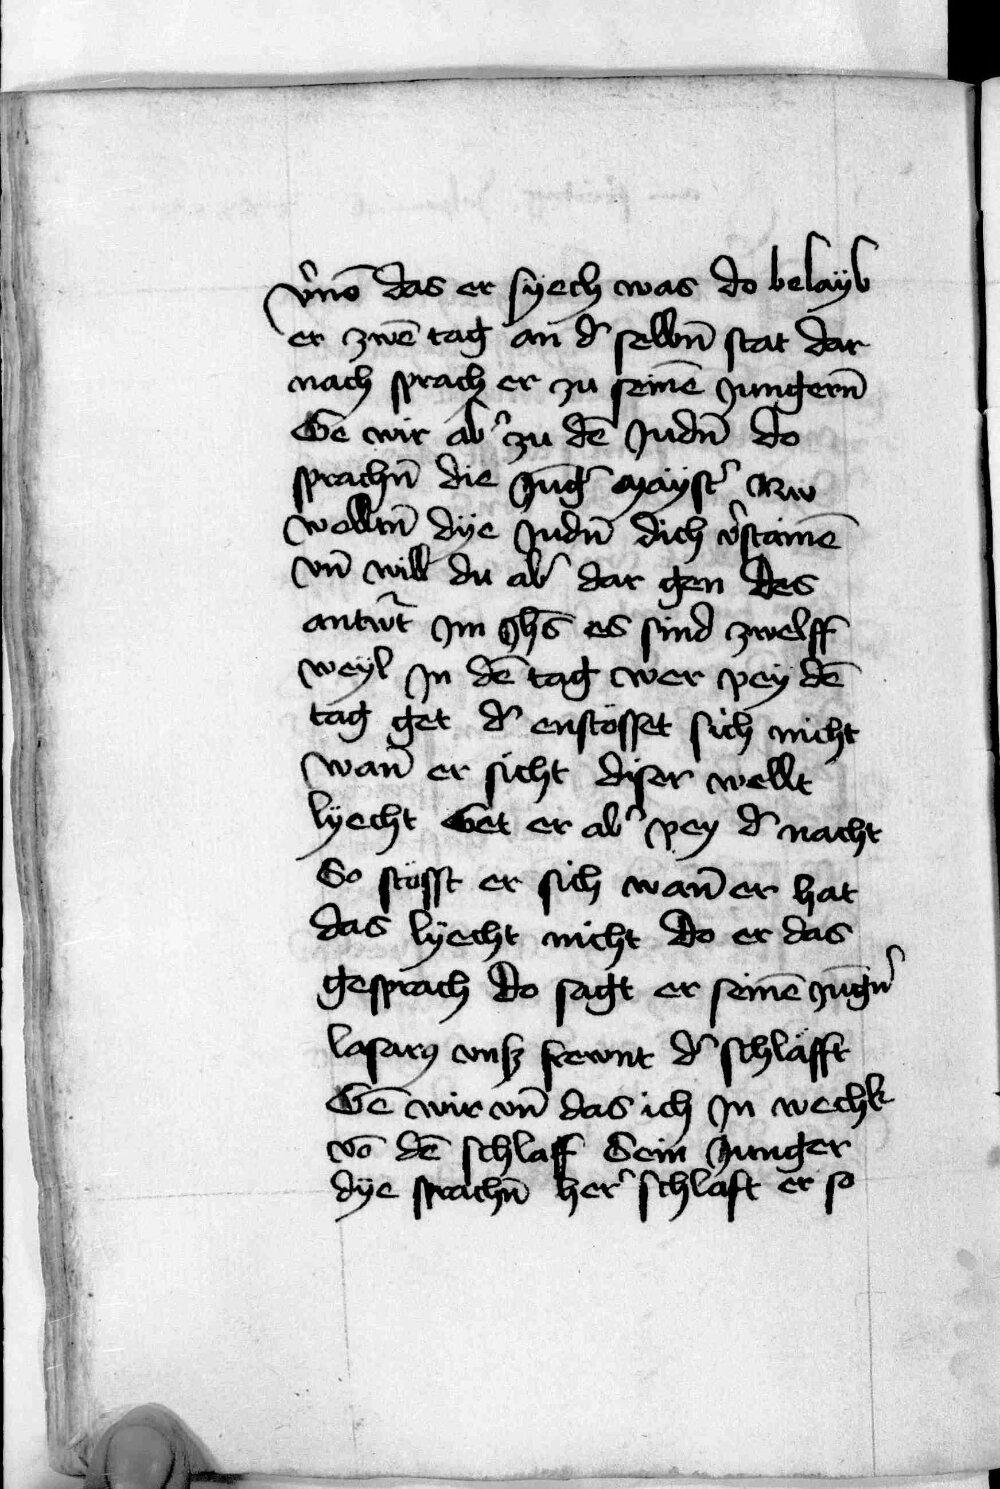 v̾nō das er sÿech was do belaÿb
er zwē tag an d̾ selbn̄ stat dar
nach sprach er zu seinē Jungern̄
Ge wir ab̾ zu dē Judn̄ do
sprachn̄ die Jūg̾ maÿst̾ Nw
welltn̄ dÿe Judn̄ dich v̾stainē
vn̄ will du ab̾ dar gen des
antw̾t im Jhs̄ es sind zwelff
weÿl Jn dē tag wer peÿ dē
tag get d̾ enstösset sich nicht
wan̄ er sicht diser wellt
lÿecht Get er ab̾ peÿ d̾ nacht
So stösst er sich wan̄ er hat
das lÿecht nicht do er das
gesprach do sagt er seinē Jūgn̾
lasarꝰ vnsz frewnt d̾ schläfft
Gē wir vn̄ das ich Jn wechk
vō dē schlaff Sein Junger
dÿe sprachn̄ her̾ schlaft er so